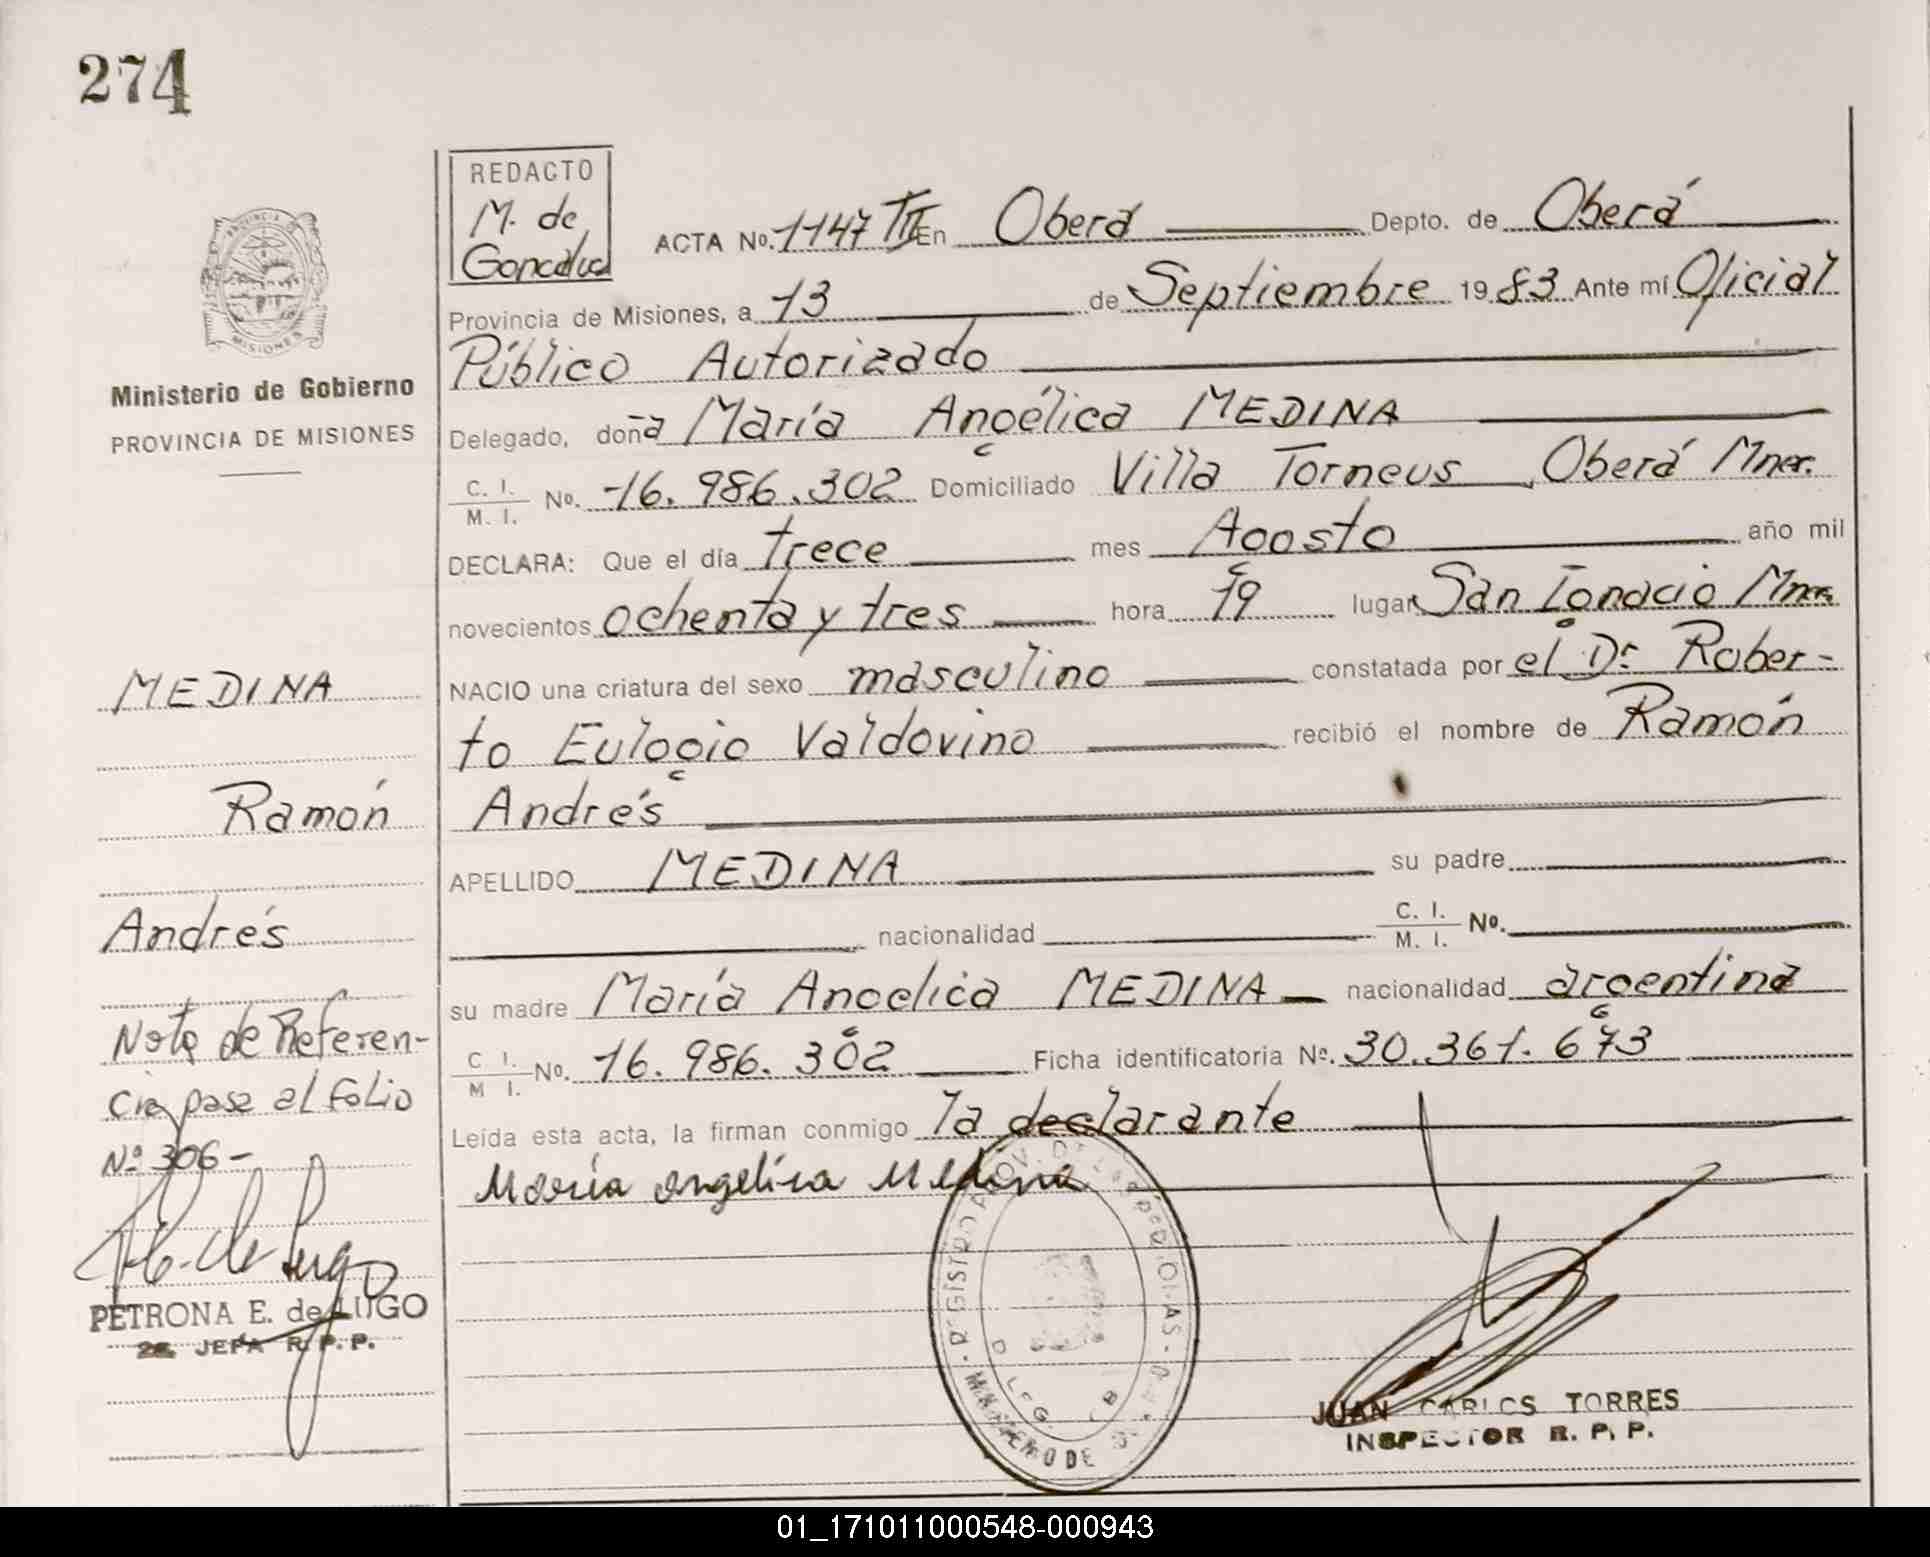 274
REDACTO
M. de
PROVINCIA DE
MISIONES
Ministerio de Gobierno
PROVINCIA DE MISIONES
ACTA No. 1147 TII En Oberá Depto. de Oberá
Provincia de Misiones, a 13 de Septiembre 1983 Ante mí Oficial
Público Autorizado
Delegado, doña María Angélica MEDINA
C. I. / M. I. No. 16.986.302 Domiciliado Villa Torneus, Oberá Mnes.
DECLARA: Que el día trece mes Agosto año mil
novecientos ochenta y tres hora 19 lugar San Ignacio Mnes.
NACIO una criatura del sexo masculino constatada por el Dr. Rober-
to Eulogio Valdovino recibió el nombre de Ramón
Andrés
APELLIDO MEDINA su padre
nacionalidad C. I. / M. I. No.
su madre María Angelica MEDINA nacionalidad argentina
C I. / M I. No. 16.986.302 Ficha identificatoria No. 30.361.673
Leída esta acta, la firman conmigo la declarante
María angelica Medina
MEDINA
Ramón
Andrés
Nota de Referen-
cia pasa al folio
Nº 306-
P. E. de Lugo
PETRONA E. de LUGO
2a. JEFA R. P. P.
JUAN CARLOS TORRES
INSPECTOR R. P. P.
01_171011000548-000943